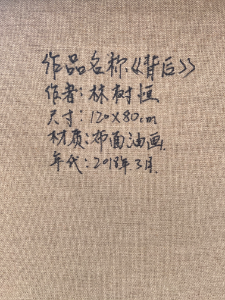 作品名称:《背后》
作者:林树恒
尺寸:120×80cm
材质:布面油画.
年代:2018年3月